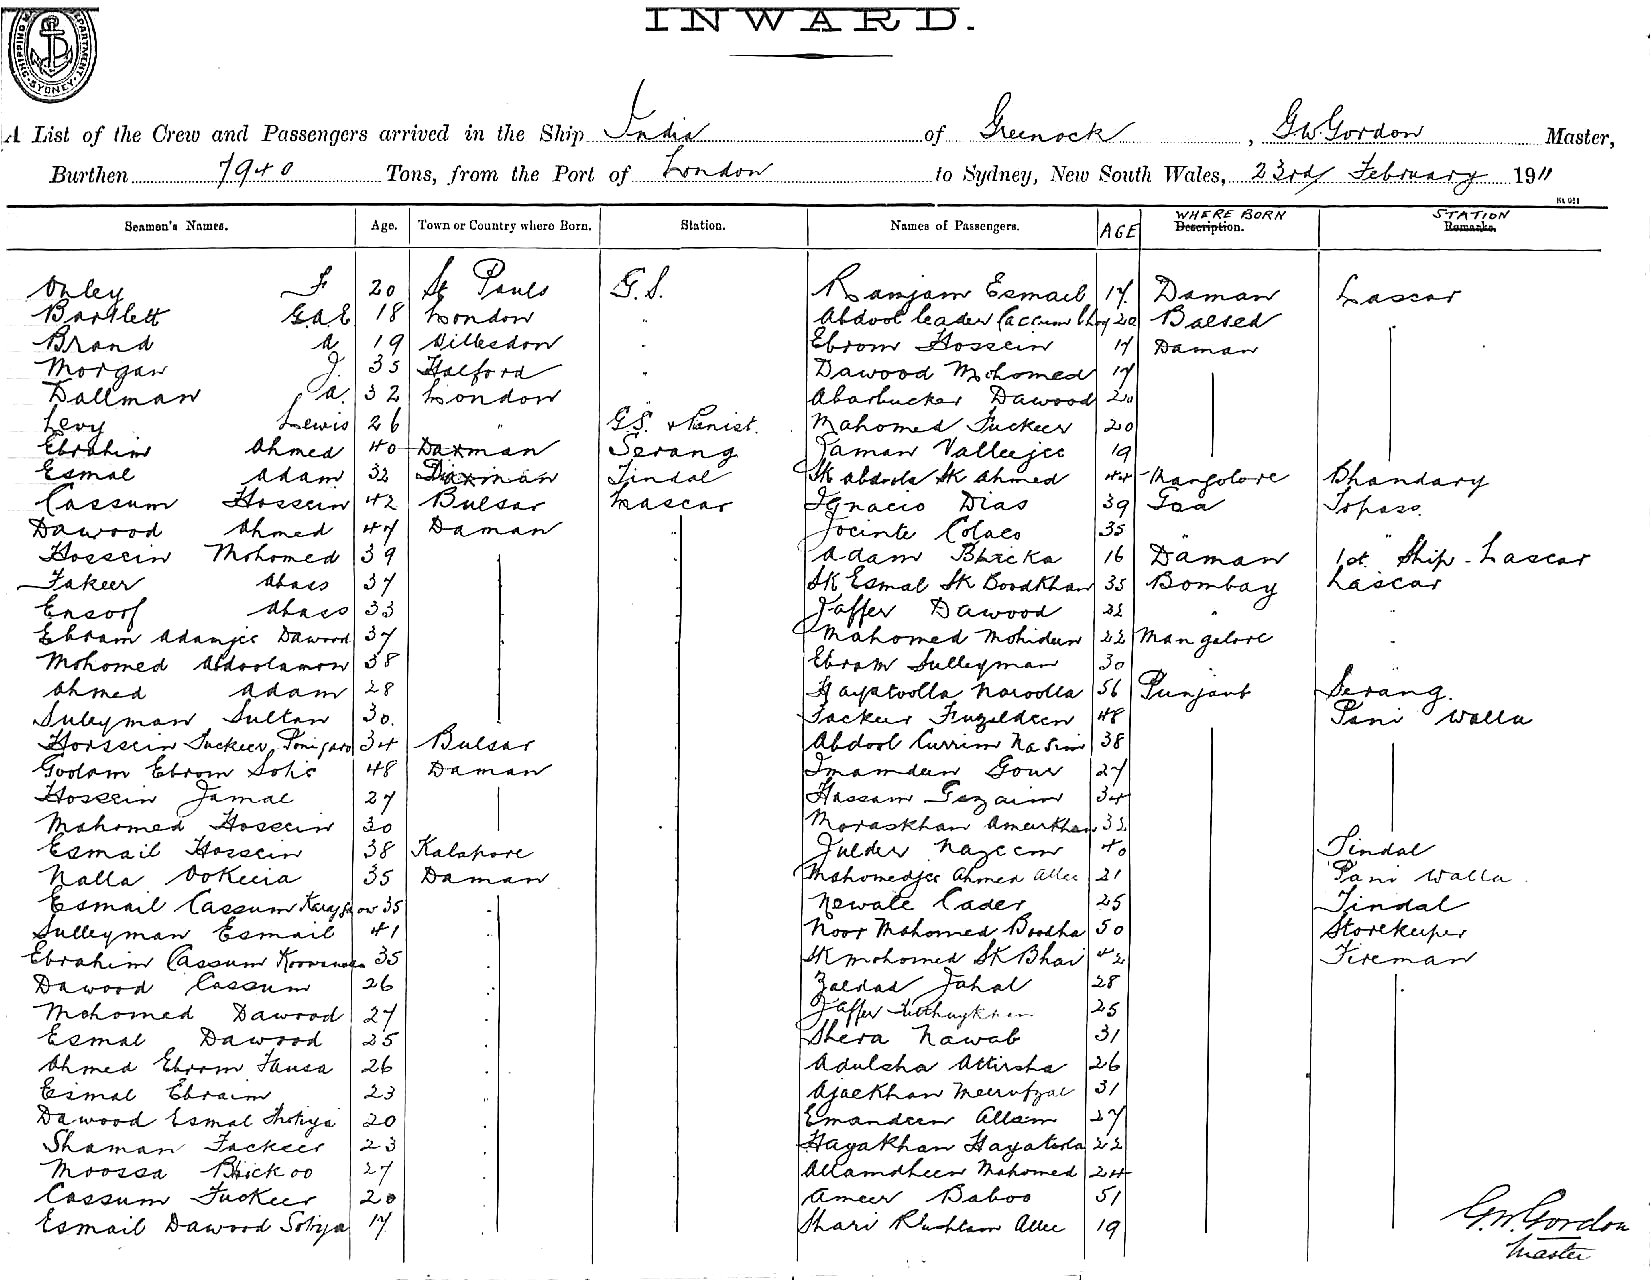 INWARD.
SHIPPING MASTER'S DEPARTMENT SYDNEY
A List of the Crew and Passengers arrived in the Ship India of Greenock, G W Gordon Master,
Burthen 7940 Tons, from the Port of London to Sydney, New South Wales, 23rd February 1911
Seamen's Names. Age. Town or Country where Born. Station. Names of Passengers. AGE WHERE BORN Description. STATION Remarks.
Onley F 20 St Pauls G.S. Ramjam Esmail 17 Daman Lascar
Bartlett G.A.E 18 London " Abdool 20 Bulsad
Brand A 19 " Ebrom Hossein 17 Daman
Morgan J. 35 Halford " Dawood Mohomed 17
Dallman A. 32 London " Abarbucker Dawood 20
Levy Lewis 26 " G.S. & Pianist. Mahomed Fuckeer 20
Ebrahim Ahmed 40 Daman Serang Jaman Valleejee 19
Esmal Adam 32 Daman Tindal Sk Abdola Sk Ahmed 44 Mangolore Bhandary
Cassum Hossein 42 Bulsar Lascar Ignacio Dias 39 Goa Topass.
Dawood Ahmed 47 Daman Jocinte Colaco 35 " "
Hossein Mohomed 39 Adam Bhicka 16 Daman 1st Ship - Lascar
Fakeer Abass 37 Sk Esmal Sk Boodkhan 35 Bombay Lascar
Ensoof Abass 33 Jaffer Dawood "
Ebram Adamjee Dawood 37 Mahomed Mohideen 22 Mangalore
Mohomed Abdoolamon 38 Ebram Sulleyman 30
Ahmed Adam 28 Hayatoolla Naroolla 56 Punjaub Serang.
Suleyman Sultan 30. Fackeer Fuzeldeen 48 Pani Walla
Hossein Fuckeer 34 Bulsar Abdool Currim Nasim 38
Goolam Ebrom Solis 48 Daman Imamdeen Gour 27
Hossein Jamal 27 Hassam 34
Mahomed Hossein 30 Moraskhan Ameerkhan
Esmail Hossein 38 Kalapore Julder Nazeem 40 Tindal
Nalla 35 Daman Mahomedjee Ahmed Allee 21 Pani Walla
Esmail Cassum 35 Newale Cader 25 Tindal
Sulleyman Esmail 41 Noor Mahomed Boodha 50 Storekeeper
Ebrahim Cassum 35 Sk Mohomed Sk Bhai 42 Fireman
Dawood Cassum 26 Zaldad Jahal 28
Mohomed Dawood 27 Jaffer 25
Esmal Dawood 25 Shera Nawab 31
Ahmed Ebrom Fausa 26 Adulsha Attirsha 26
Esmal Ebraim 23 Ajaekhan Meerufzal 31
Dawood Esmal 20 Emandeen Allam 27
Shaman Fackeer 23 Hayakhan Hayatula 22
Moossa Bhickoo 27 Allamdheen Mahomed 24
Cassum Fuckeer 20 Ameer Baboo 51
Esmail Dawood Sotiya 17 Shari Allee 19
G.W. Gordon
Master